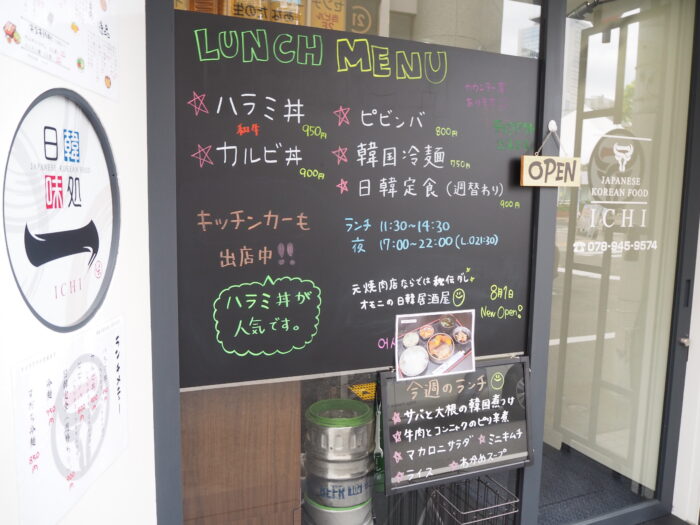 LUNCH MENU
☆ハラミ丼
和牛 950円
☆カルビ丼
900円
☆ピビンバ
800円
☆韓国冷麺 750円
☆日韓定食(週替わり)
900円
カウンター席
あります
キッチンカーも
出店中!!
ランチ 11:30~14:30
夜 17:00~22:00(L.O21:30)
ハラミ丼が
人気です。
元焼肉店ならでは秘伝ダレ
オモニの日韓居酒屋
8月1日
New Open!
今週のランチ
☆サバと大根の韓国煮つけ
☆牛肉とコンニャクのピリ辛煮
☆マカロニサラダ ☆ミニキムチ
☆ライス ☆わかめスープ
OPEN
JAPANESE
KOREAN FOOD
ICHI
☎078-945-9574
日韓
JAPANESE KOREAN FOOD
味処
一
ICHI
ランチメニュー